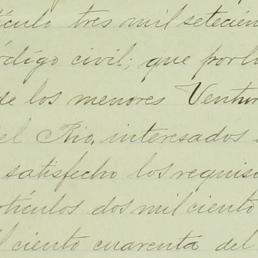 ículo tres mil setecien
ódigo civil; que por lo
de los menores Ventur
el Rio, interesados
satisfecho los requisi
rtículos dos mil ciento
l ciento cuarenta del